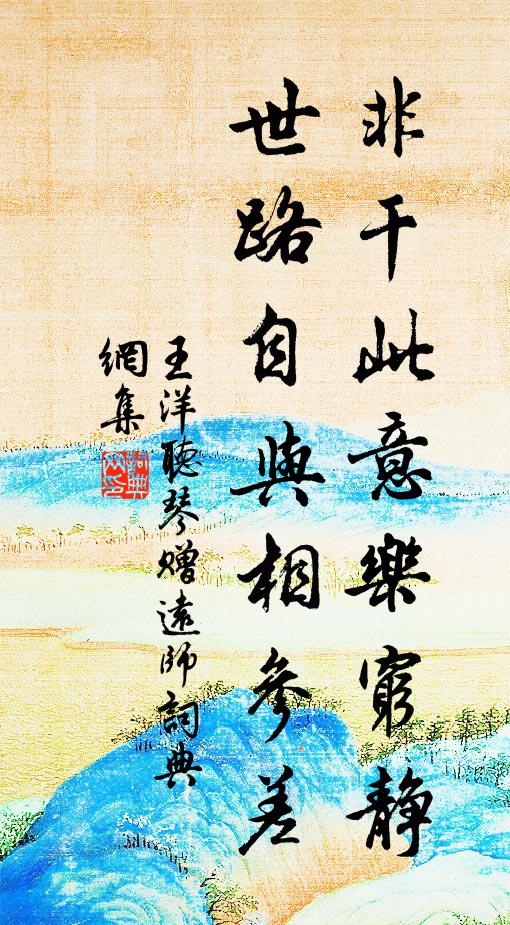 非干此意樂窮靜
世路自與相參差
王洋聽琴贈遠師詞典
網集